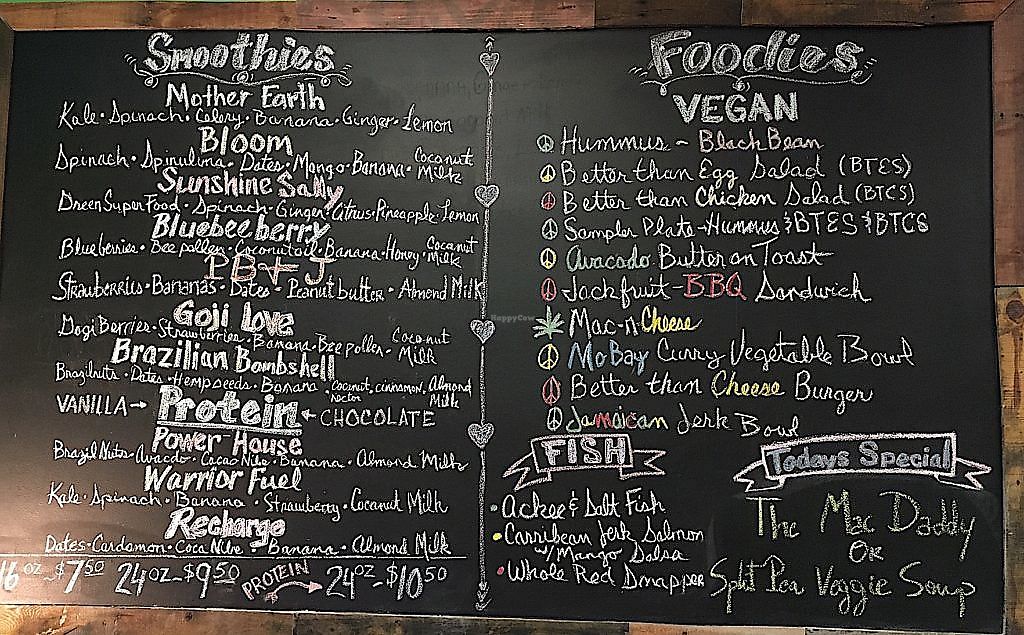 Smoothies
Mother Earth
Kale · Spinach · Celery · Banana · Ginger · Lemon
Bloom
Spinach · Spirulina · Dates · Mango · Banana · Coconut Milk
Sunshine Sally
Green SuperFood · Spinach · Ginger · Citrus · Pineapple · Lemon
Bluebee berry
Blueberries · Bee pollen · Coconut oil · Banana · Honey · Coconut Milk
PB & J
Strawberries · Bananas · Dates · Peanut butter · Almond Milk
Goji Love
Gogi Berries · Strawberries · Banana · Bee pollen · Coconut Milk
Brazilian Bombshell
Brazilnuts · Dates · Hemp seeds · Banana · coconut nector, cinnamon, Almond Milk
VANILLA → Protein ← CHOCOLATE
Power-House
Brazil Nuts · Avacdo · Cacao Nibs · Banana · Almond Milk
Warrior Fuel
Kale · Spinach · Banana · Strawberry · Coconut Milk
Recharge
Dates · Cardamon · Coca Nibs · Banana · Almond Milk
16oz - $7.50 24oz - $9.50 PROTEIN → 24oz - $10.50
Foodies
VEGAN
Hummus - Black Bean
Better than Egg Salad (BTES)
Better than Chicken Salad (BTCS)
Sampler Plate - Hummus & BTES & BTCS
Avacado Butter on Toast
Jackfruit - BBQ Sandwich
Mac-n-Cheese
MoBay Curry Vegetable Bowl
Better than Cheese Burger
Jamaican Jerk Bowl
FISH
· Ackee & Salt Fish
· Carribean Jerk Salmon
w/ Mango Salsa
· Whole Red Snapper
Todays Special
The Mac Daddy
OR
Split Pea Veggie Soup
HappyCow